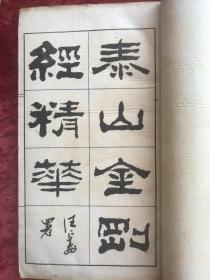 泰山金剛
經精華
署